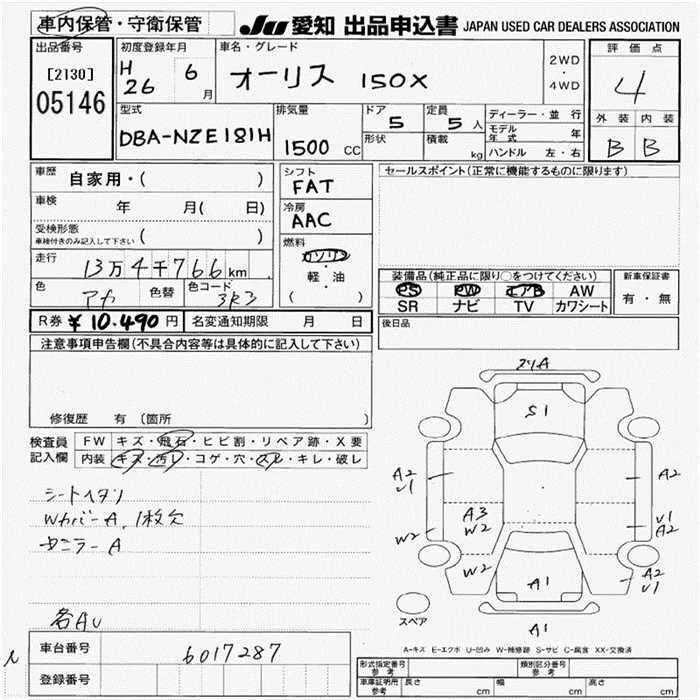 車内保管・守衛保管
JU 愛知 出品申込書 JAPAN USED CAR DEALERS ASSOCIATION
出品番号
[2130]
05146
初度登録年月
H 26 6 月
車名・グレード
オーリス 150X
2WD
・
4WD
評価点
4
外装 内装
B B
型式
DBA-NZE181H
排気量
1500 CC
ドア
5
形状
定員
5 人
積載
kg
ディーラー・並行
モデル年式 年
ハンドル 左・右
車歴
自家用・( )
車検
年 月( 日)
受検形態
車検付きのみ記入して下さい ( )
走行
13万4千766km
色
アカ
色替
色コード
3R3
シフト
FAT
冷房
AAC
燃料
ガソリン
・
軽・油
( )
セールスポイント(正常に機能するものに限ります)
装備品(純正品に限り○をつけてください)
PS PW エアB AW
SR ナビ TV カワシート
新車保証書
有・無
後日品
R券 ¥10.490円
名変通知期限 月 日
注意事項申告欄(不具合内容等は具体的に記入して下さい)
修復歴 有 〔箇所 〕
検査員
記入欄
FW キズ・飛石・ヒビ割・リペア跡・X要
内装 キズ・汚レ・コゲ・穴・スレ・キレ・破レ
シートヘタリ
WカバーA, 1枚欠
各AU
車台番号
6017287
登録番号
S1
A2
U1
W2
A3
W2
W2
A1
A1
A2
U1
A2
A2
U1
スペア
A-キズ E-エクボ U-凹み W-補修跡 S-サビ C-腐食 XX-交換済
形式指定番号
参考
類別区分番号
参考
車庫証明用
参考
長さ cm
幅 cm
高さ cm